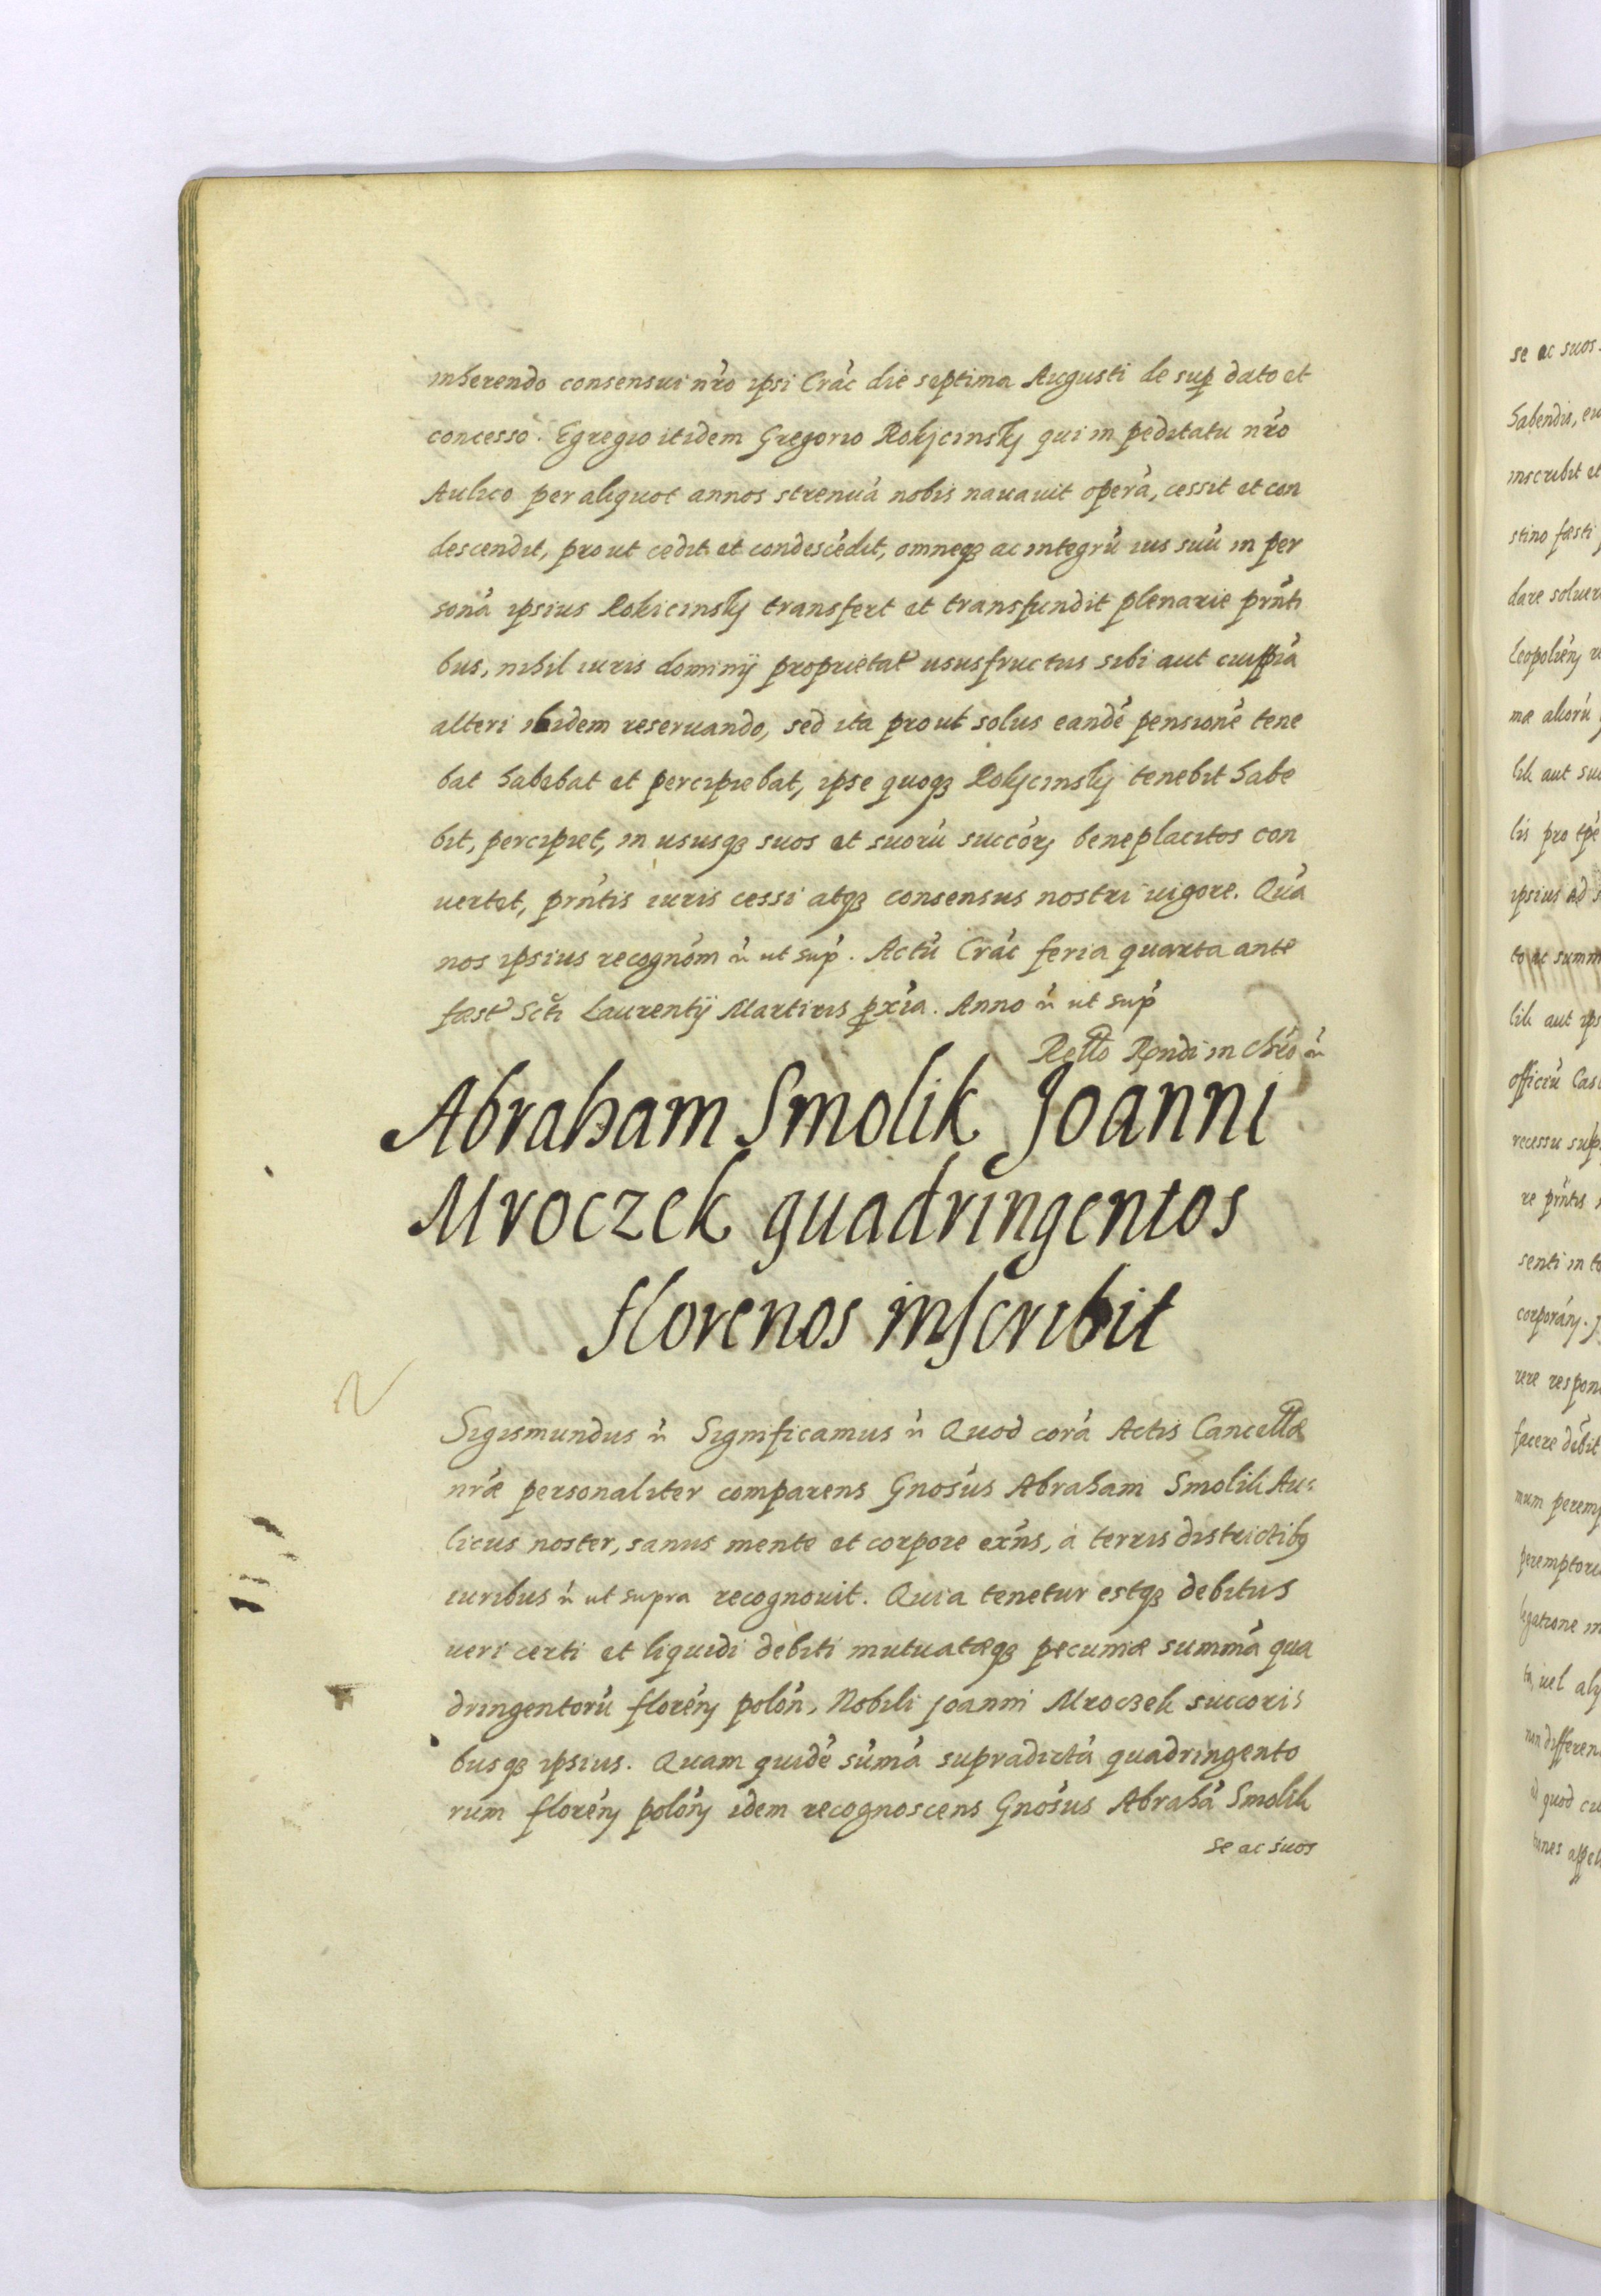 inherendo consensui nr̃o ipsi Crac̃ die septima Augusti de sup dato et
concesso. Egregio itidem Gregorio Rokjcinskj qui in peditatu nr̃o
Aulico per aliquot annos strenuã nobis nauauit operã, cessit et con
descendit, prout cedit et condescẽdit, omneq3 ac integrũ ius suũ in per
sonã ipsius Rokicinskj transfert et transfundit plenarie prñti
bus, nihil iuris dominij proprietat usufructus sibi aut cuipiã
alteri ibidem reseruando, sed ita prout solus eandẽ pensionẽ tene
bat habebat et percipiebat, ipse quoq3 Rokjcinskj tenebit habe
bit, percipiet, in ususq3 suos et suorũ succõrj beneplacitos con
uertet, prñtis iuris cessi atq3 consensus nostri uigore. Quã
nos ipsius recognõm ñ ut sup̃. Actũ Crac̃ feria quarta ante
fæst Scti Laurentij Martiris pxĩa. Anno ñ ut sup̃
Retto Rendi in Chr̃o ñ
Abraham Smolik Joanni
Mroczek quadringentos
florenos inscribit
Sigismundus ñ Significamus ñ Quod corã Actis Cancellæ
nr̃æ personaliter comparens Gnosũs Abraham Smolik Au=
licus noster, sanus mente et corpore exñs, à terris districtibq
iuribus ñ ut supra recognouit. Quia tenetur estq3 debitus
ueri certi et liquidi debiti mutuatæq3 pecuniæ summã qua
dringentorũ florẽnj polõn, Nobili Joanni Mroczek succori=
busq3 ipsius. Quam quidẽ sũmã supradictã quadringento
rum florẽnj polõnj idem recognoscens Gnosũs Abrahã Smolik
se ac suos
se ac suos
habendis, eu
inscribit et
stino fæsti
dare soluer
Leopoliẽnj
mæ aliorũ
lik aut suc
lis pro tpẽ
ipsius ad s
to ac summ
lik aut ips
officiũ Cas
recessu sup
re prñtis
senti in to
corporãnj.
rere respon
facere dẽbit
mum peremp
peremptori
ligatione in
ta, uel alij
non differen
id quod cu
tiones appel